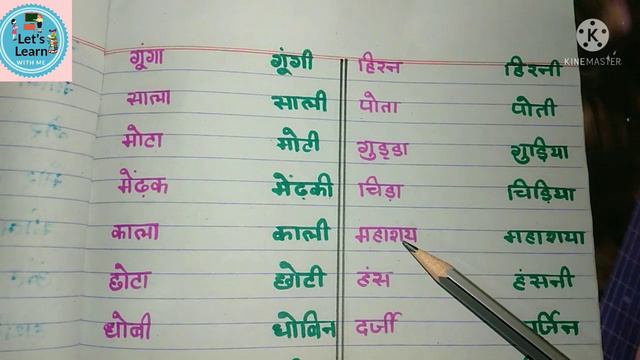 Let's
Learn
WITH ME
KINEMASTER
गूंगा गूंगी हिरन हिरनी
साला साली पोता पोती
मोटा मोटी गुड्डा गुड़िया
मेंढ़क मेंढ़की चिड़ा चिड़िया
काला काली महाशय महाशया
छोटा छोटी हंस हंसनी
धोबी धोबिन दर्जी